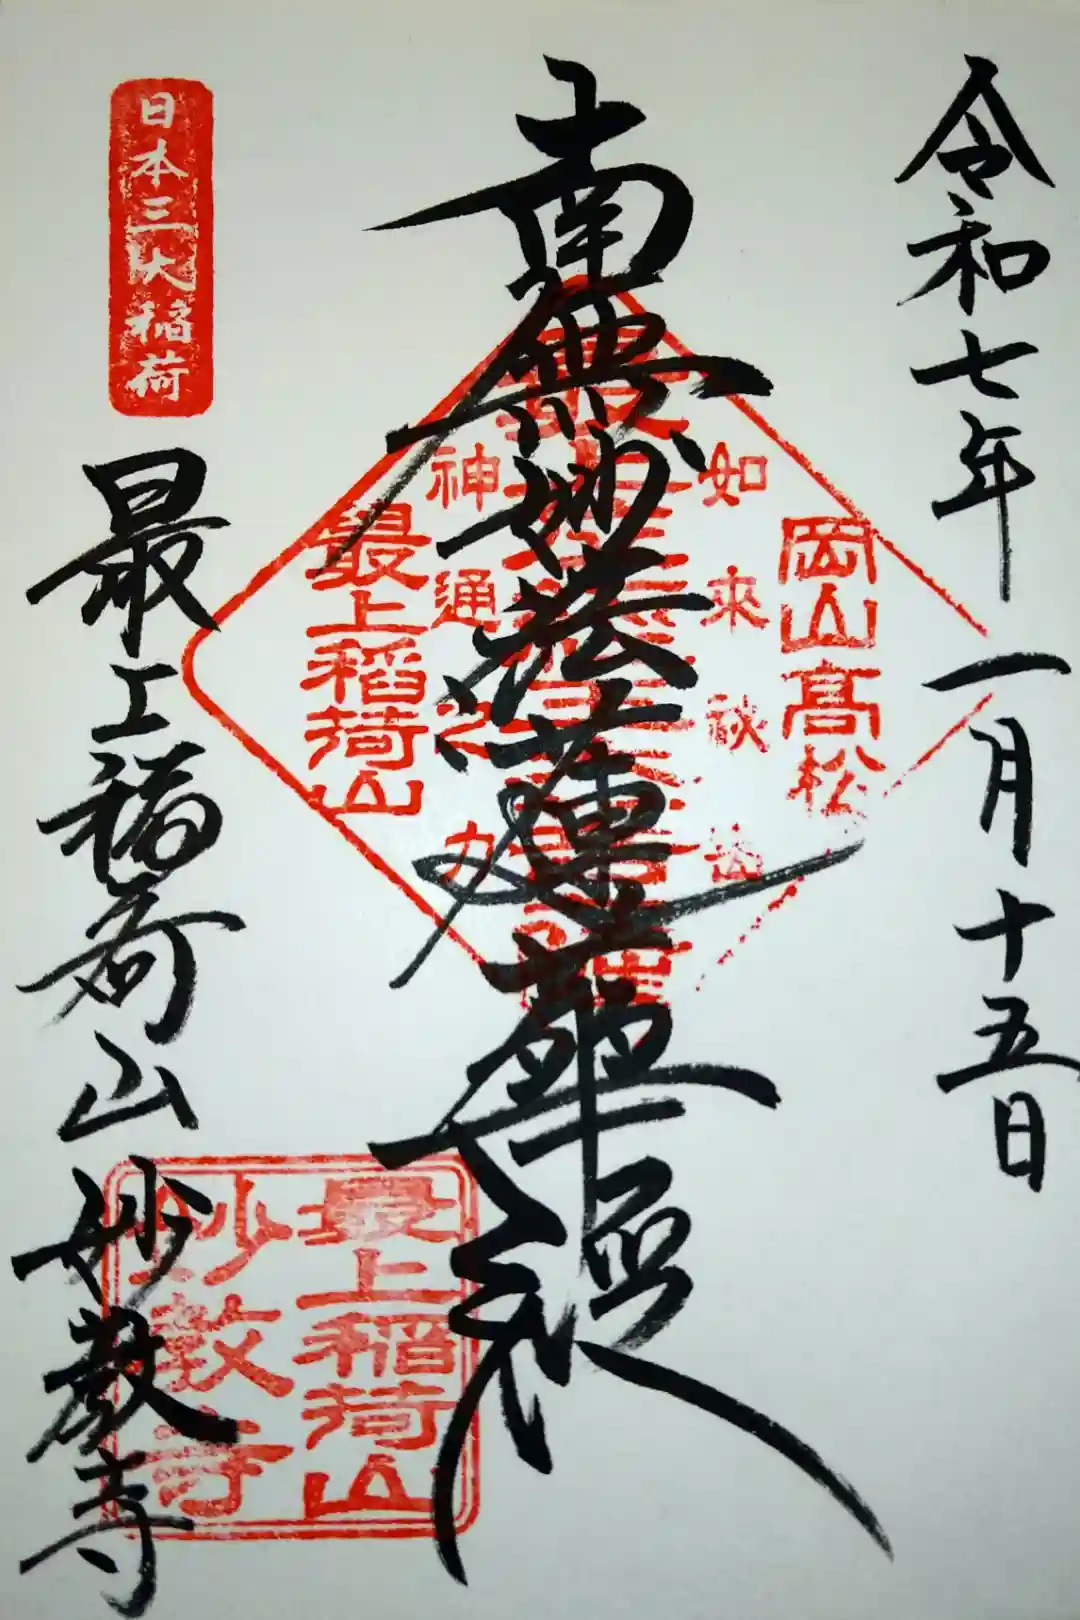 令和七年一月十五日
岡山高松
如来秘密
南無妙法蓮華経
神通之力
最上稲荷山
日本三大稲荷
最上稲荷山妙教寺
最上稲荷山
妙教寺